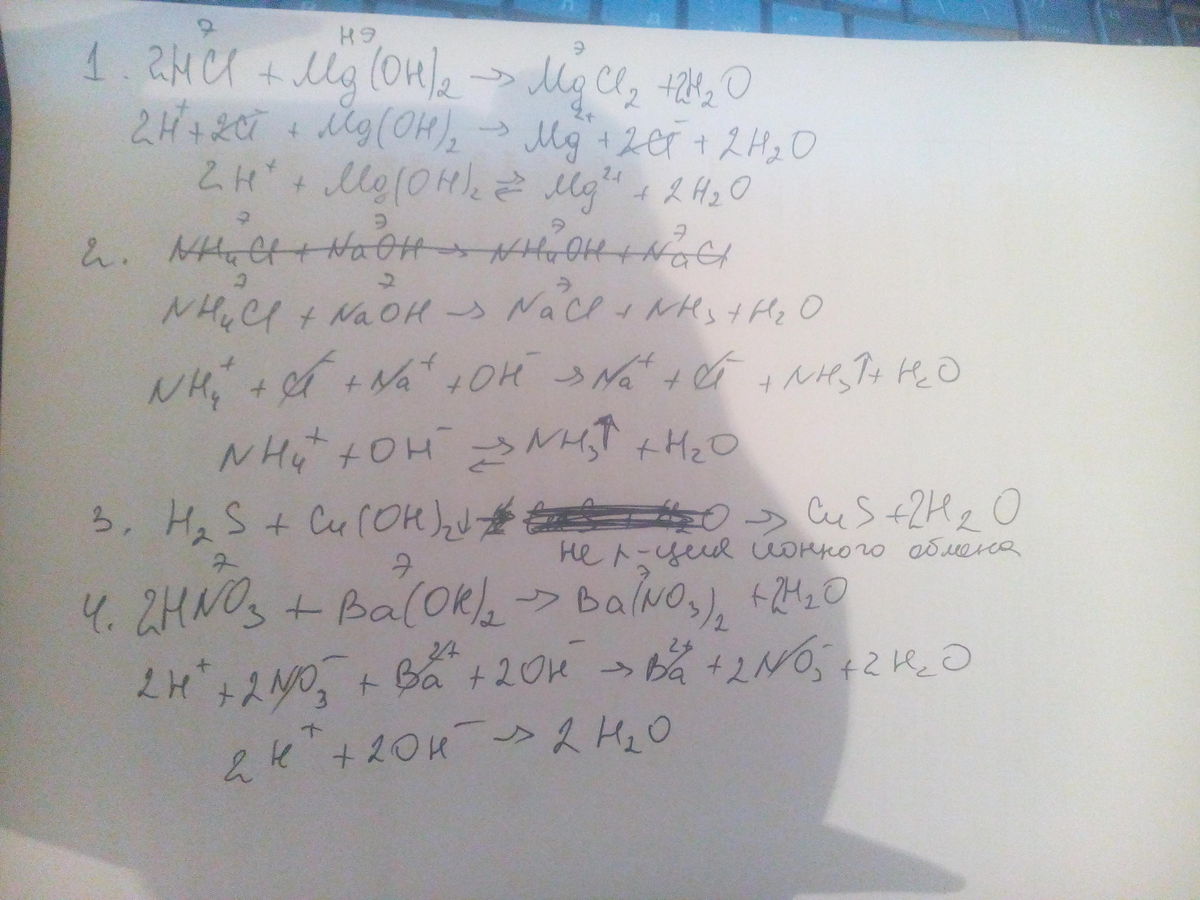 э нэ э
1. 2HCl + Mg(OH)₂ → MgCl₂ + 2H₂O
2H⁺ + 2Cl⁻ + Mg(OH)₂ → Mg²⁺ + 2Cl⁻ + 2H₂O
2H⁺ + Mg(OH)₂ ⇄ Mg²⁺ + 2H₂O
э э э э
2. NH₄Cl + NaOH → NH₄OH + NaCl
э э э
NH₄Cl + NaOH → NaCl + NH₃ + H₂O
NH₄⁺ + Cl⁻ + Na⁺ + OH⁻ → Na⁺ + Cl⁻ + NH₃↑ + H₂O
NH₄⁺ + OH⁻ ⇄ NH₃↑ + H₂O
3. H₂S + Cu(OH)₂↓ → CuS + 2H₂O
не р-ция ионного обмена
э э э
4. 2HNO₃ + Ba(OH)₂ → Ba(NO₃)₂ + 2H₂O
2H⁺ + 2NO₃⁻ + Ba²⁺ + 2OH⁻ → Ba²⁺ + 2NO₃⁻ + 2H₂O
2H⁺ + 2OH⁻ → 2H₂O